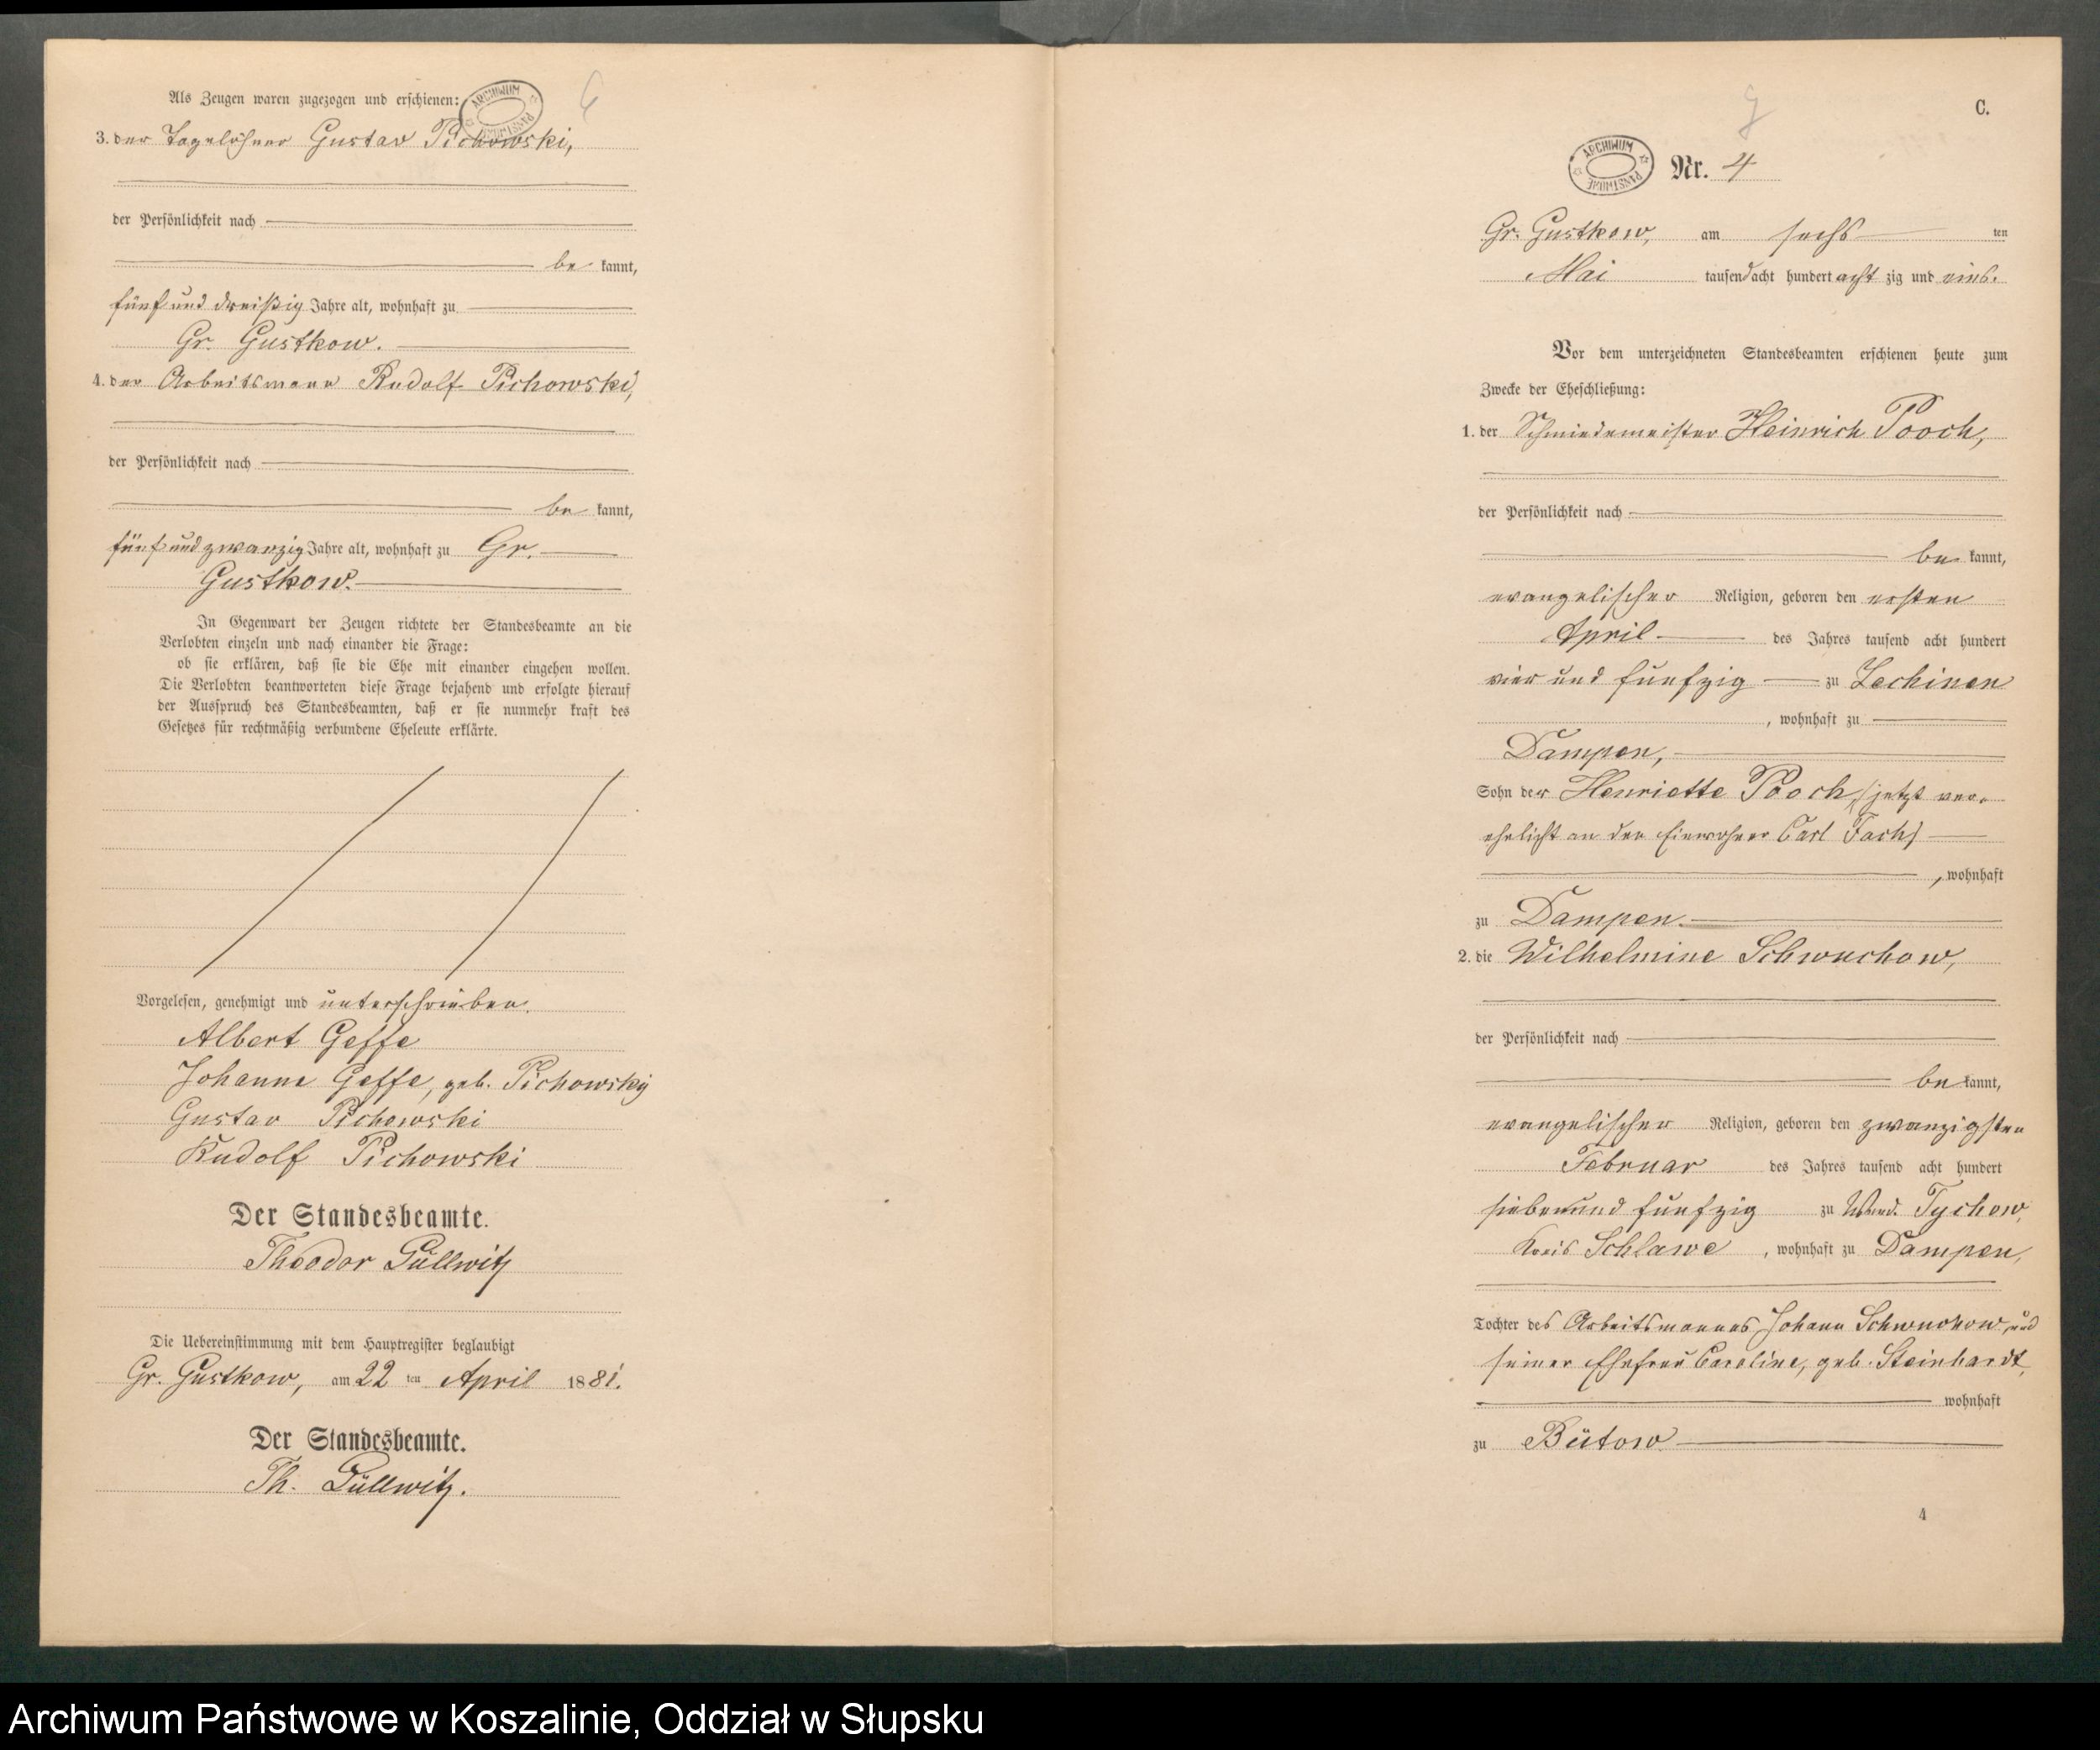 Als Zeugen waren zugezogen und erschienen:
3. der Tagelöhner Gustav Pichowski,
der Persönlichkeit nach
be kannt,
fünf und dreißig Jahre alt, wohnhaft zu
Gr. Gustkow.
4. der Arbeitsmann Rudolf Pichowski,
der Persönlichkeit nach
be kannt,
fünf und zwanzig Jahre alt, wohnhaft zu Gr.
Gustkow.
In Gegenwart der Zeugen richtete der Standesbeamte an die
Verlobten einzeln und nach einander die Frage:
ob sie erklären, daß sie die Ehe mit einander eingehen wollen.
Die Verlobten beantworteten diese Frage bejahend und erfolgte hierauf
der Ausspruch des Standesbeamten, daß er sie nunmehr kraft des
Gesetzes für rechtmäßig verbundene Eheleute erklärte.
Vorgelesen, genehmigt und unterschrieben.
Albert Geffe
Johanne Geffe, geb. Pichowsky
Gustav Pichowski
Rudolf Pichowski
Der Standesbeamte.
Theodor Püllwitz
Die Uebereinstimmung mit dem Hauptregister beglaubigt
Gr. Gustkow, am 22 ten April 1881.
Der Standesbeamte.
Th. Püllwitz.
C.
ARCHIWUM PAŃSTWOWE
Nr. 4
Gr. Gustkow, am sechs ten
Mai tausend acht hundert acht zig und eins.
Vor dem unterzeichneten Standesbeamten erschienen heute zum
Zwecke der Eheschließung:
1. der Schmiedemeister Heinrich Pooch,
der Persönlichkeit nach
be kannt,
evangelischer Religion, geboren den ersten
April des Jahres tausend acht hundert
vier und fünfzig zu Zechinen
, wohnhaft zu
Dampen,
Sohn der Henriette Pooch, (jetzt ver-
ehelicht an den Einwohner Carl Fach)
, wohnhaft
zu Dampen.
2. die Wilhelmine Schwuchow,
der Persönlichkeit nach
be kannt,
evangelischer Religion, geboren den zwanzigsten
Februar des Jahres tausend acht hundert
sieben und fünfzig zu Wend. Tychow,
Kreis Schlawe, wohnhaft zu Dampen,
Tochter des Arbeitsmannes Johann Schwuchow und
seiner Ehefrau Caroline, geb. Steinhardt,
wohnhaft
zu Bütow
4
Archiwum Państwowe w Koszalinie, Oddział w Słupsku